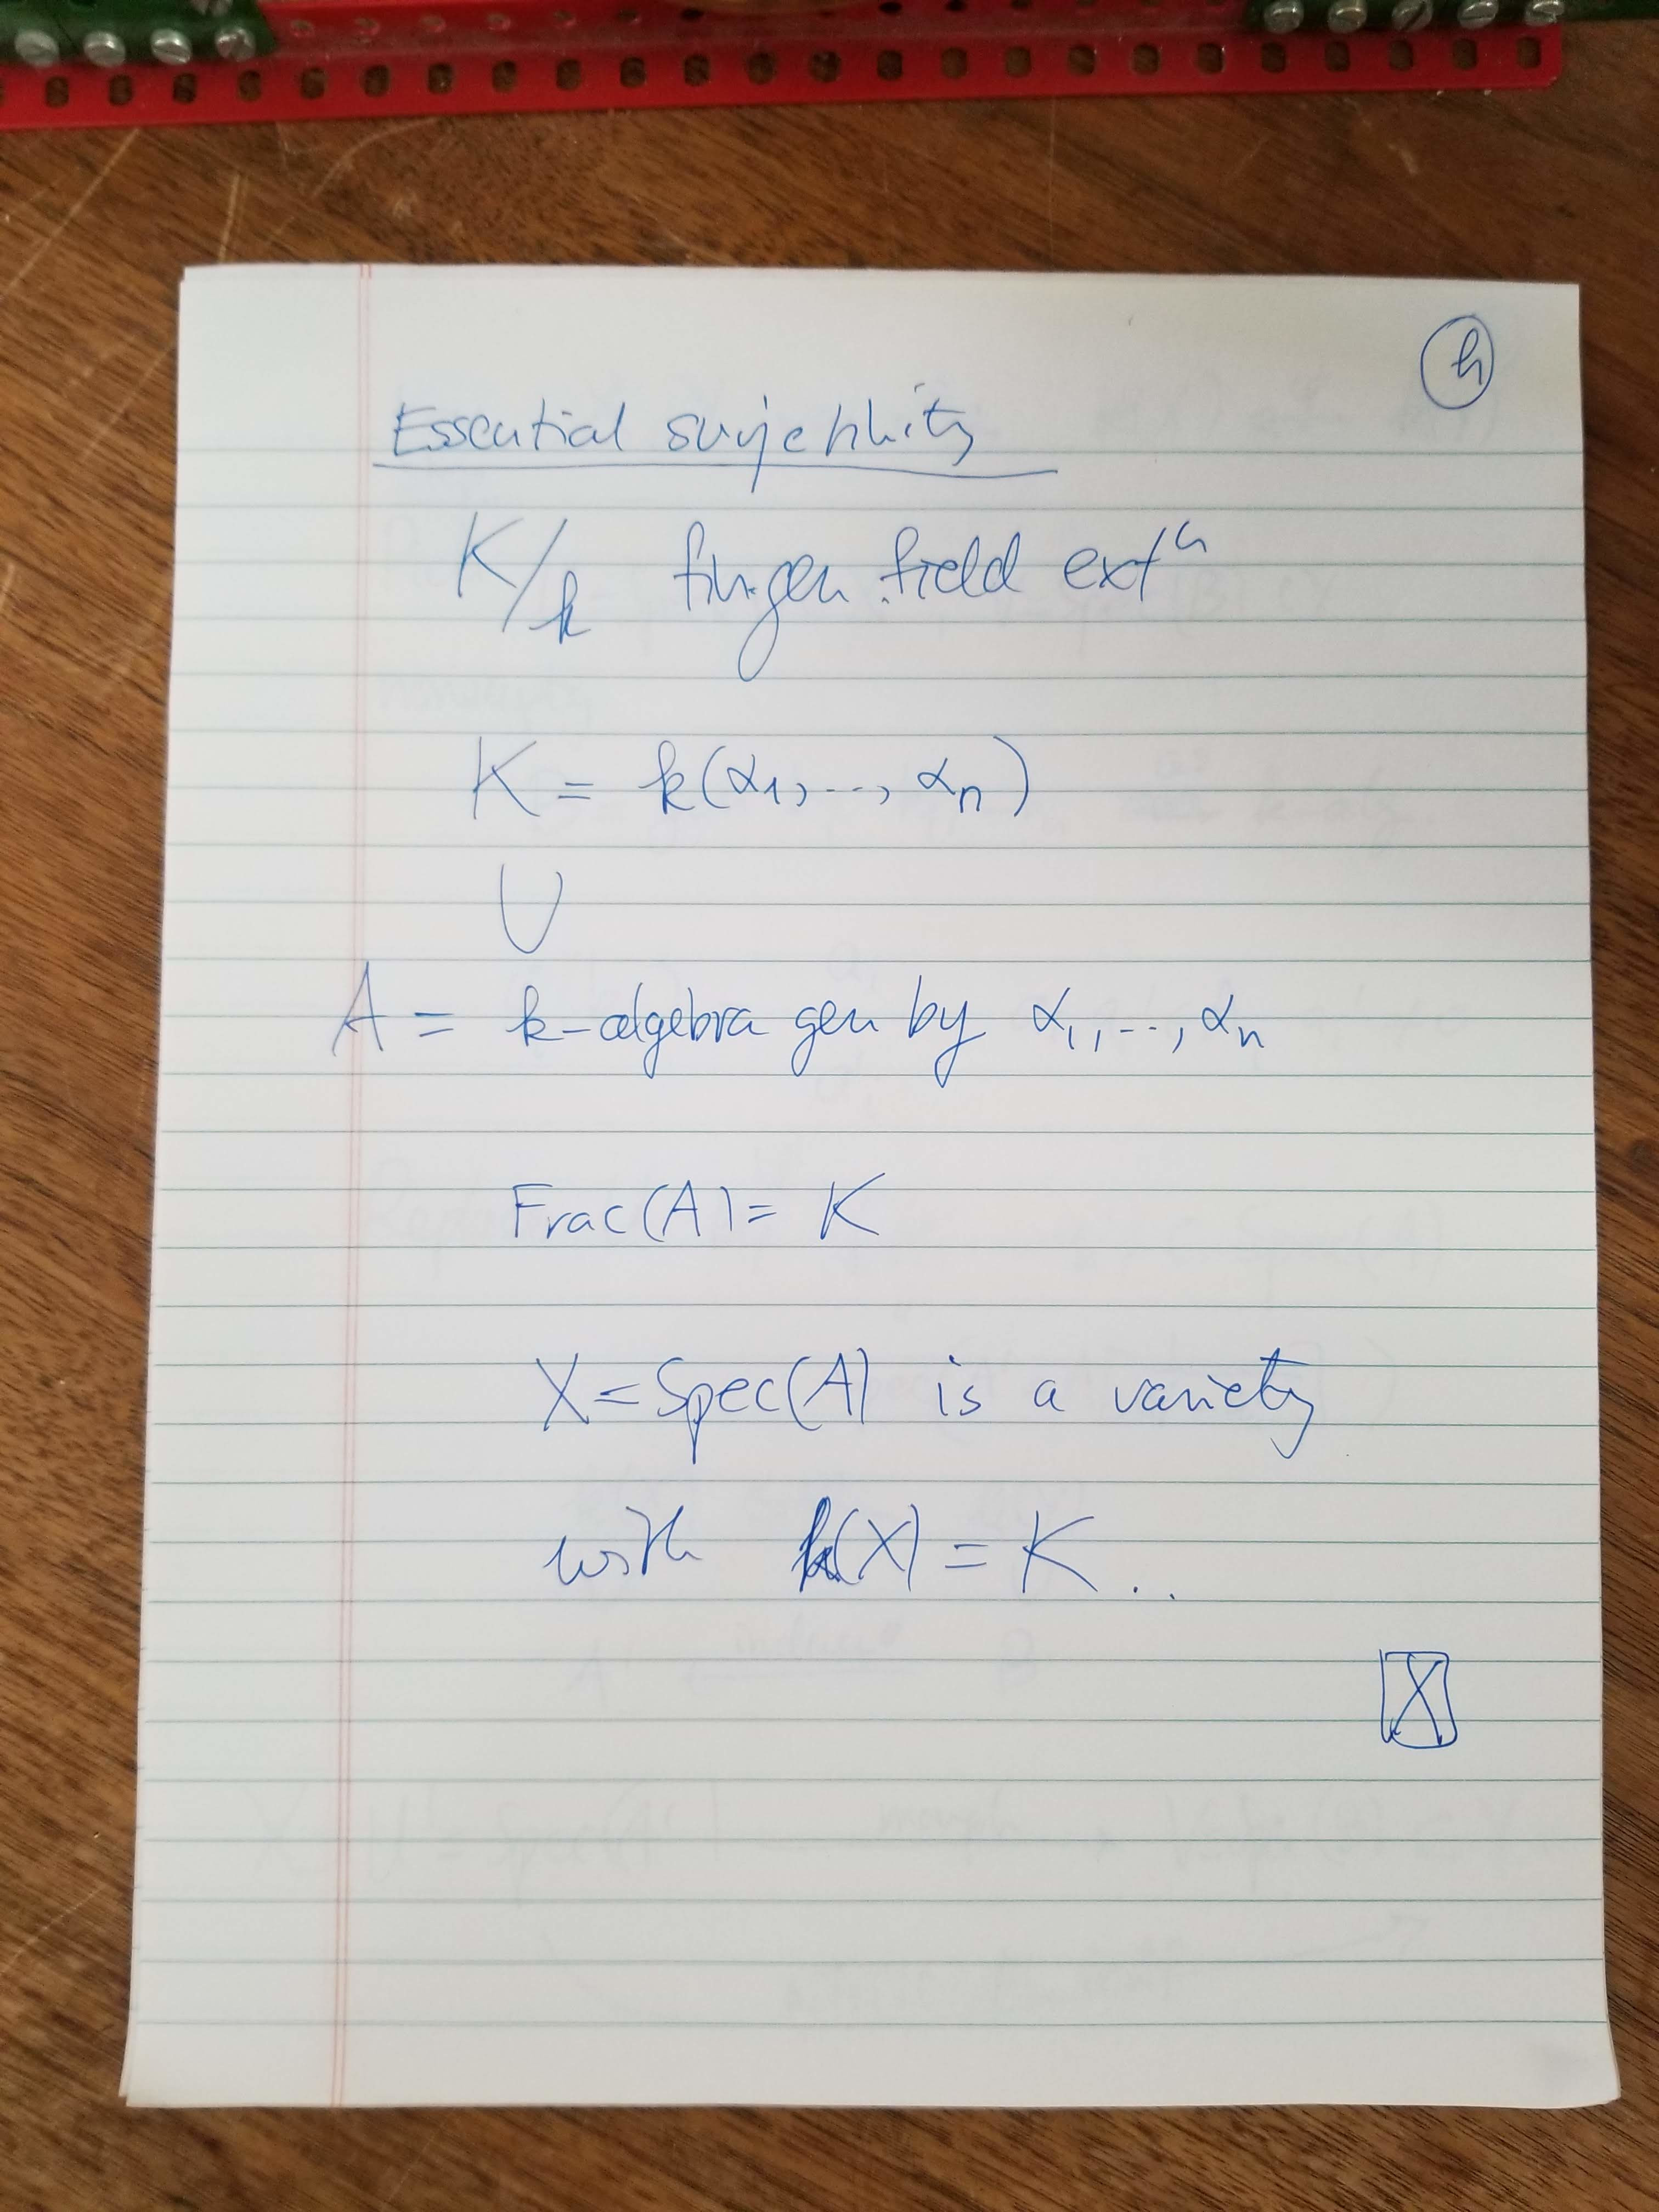 h
Essential surjectivity
K/k fin.gen. field extⁿ
K = k(α₁, ..., αₙ)
∪
A = k-algebra gen by α₁, ..., αₙ
Frac(A) = K
X = Spec(A) is a variety
with k(X) = K..